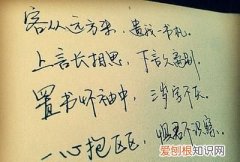 客从远方来，遗我一书札。
上言长相思，下言久离别。
置书怀袖中，三岁字不灭。
一心抱区区，惧君不识察。
爱刨根知识网